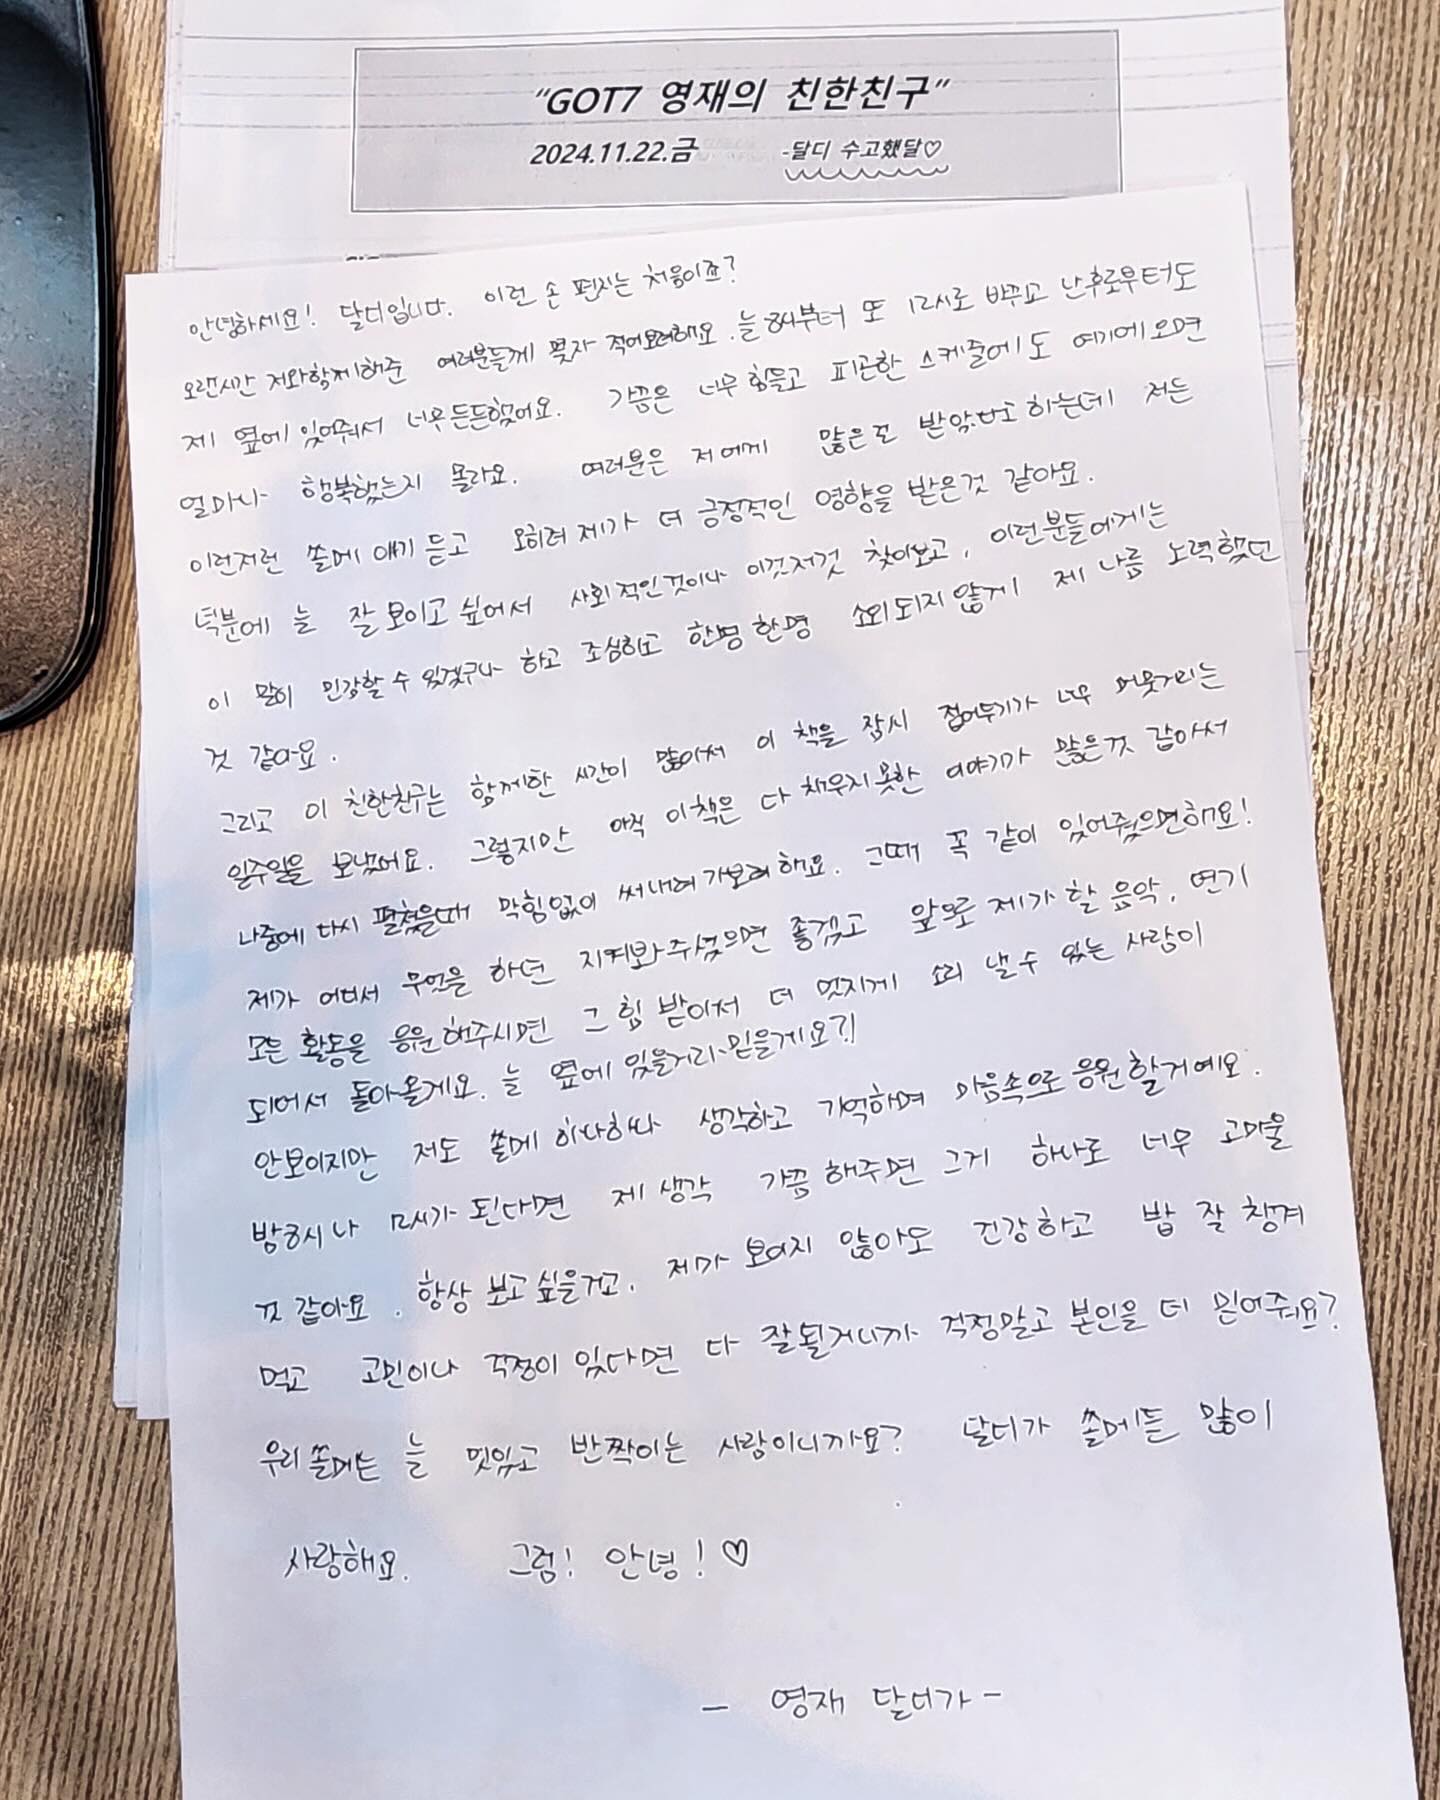 "GOT7 영재의 친한친구"
2024.11.22.금 -달디 수고했달♡
안녕하세요! 달디입니다. 이런 손 편지는 처음이죠?
오랜시간 저와함께해준 여러분들께 몇자 적어보려해요. 늘 8시부터 또 12시로 바뀌고 난후로부터도
제 옆에 있어줘서 너무 든든했어요. 가끔은 너무 힘들고 피곤한 스케줄에도 여기에오면
얼마나 행복했는지 몰라요. 여러분은 저에게 많은걸 받았다고 하는데 저는
이런저런 쏠메 얘기 듣고 오히려 제가 더 긍정적인 영향을 받은것 같아요.
덕분에 늘 잘 보이고 싶어서 사회적인것이나 이것저것 찾아보고, 이런분들에게는
이 말이 민감할 수 있겠구나 하고 조심하고 한명 한명 소외되지 않게 제 나름 노력했던
것 같아요.
그리고 이 친한친구는 함께한 시간이 많아서 이 책을 잠시 접어두기가 너무 머뭇거리는
일주일을 보냈어요. 그렇지만 아직 이책은 다 채우지못한 이야기가 많은것 같아서
나중에 다시 펼쳤을때 막힘없이 써내려가보려해요. 그때 꼭 같이 있어줬으면해요!
제가 어디서 무엇을 하던 지켜봐주셨으면 좋겠고 앞으로 제가 할 음악, 연기
모든 활동을 응원해주시면 그 힘 받아서 더 멋지게 소리 낼 수 있는 사람이
되어서 돌아올게요. 늘 옆에 있을거라 믿을게요?!
안보이지만 저도 쏠메 하나하나 생각하고 기억하며 마음속으로 응원할거예요.
밤8시나 12시가 된다면 제 생각 가끔 해주면 그게 하나로 너무 고마울
것 같아요. 항상 보고 싶을거고. 제가 보이지 않아도 건강하고 밥 잘 챙겨
먹고 고민이나 걱정이 있다면 다 잘될거니까 걱정말고 본인을 더 믿어줘요?
우리 쏠메는 늘 멋있고 반짝이는 사람이니까요? 달디가 쏠메들 많이
사랑해요. 그럼! 안녕!♡
- 영재 달디가 -